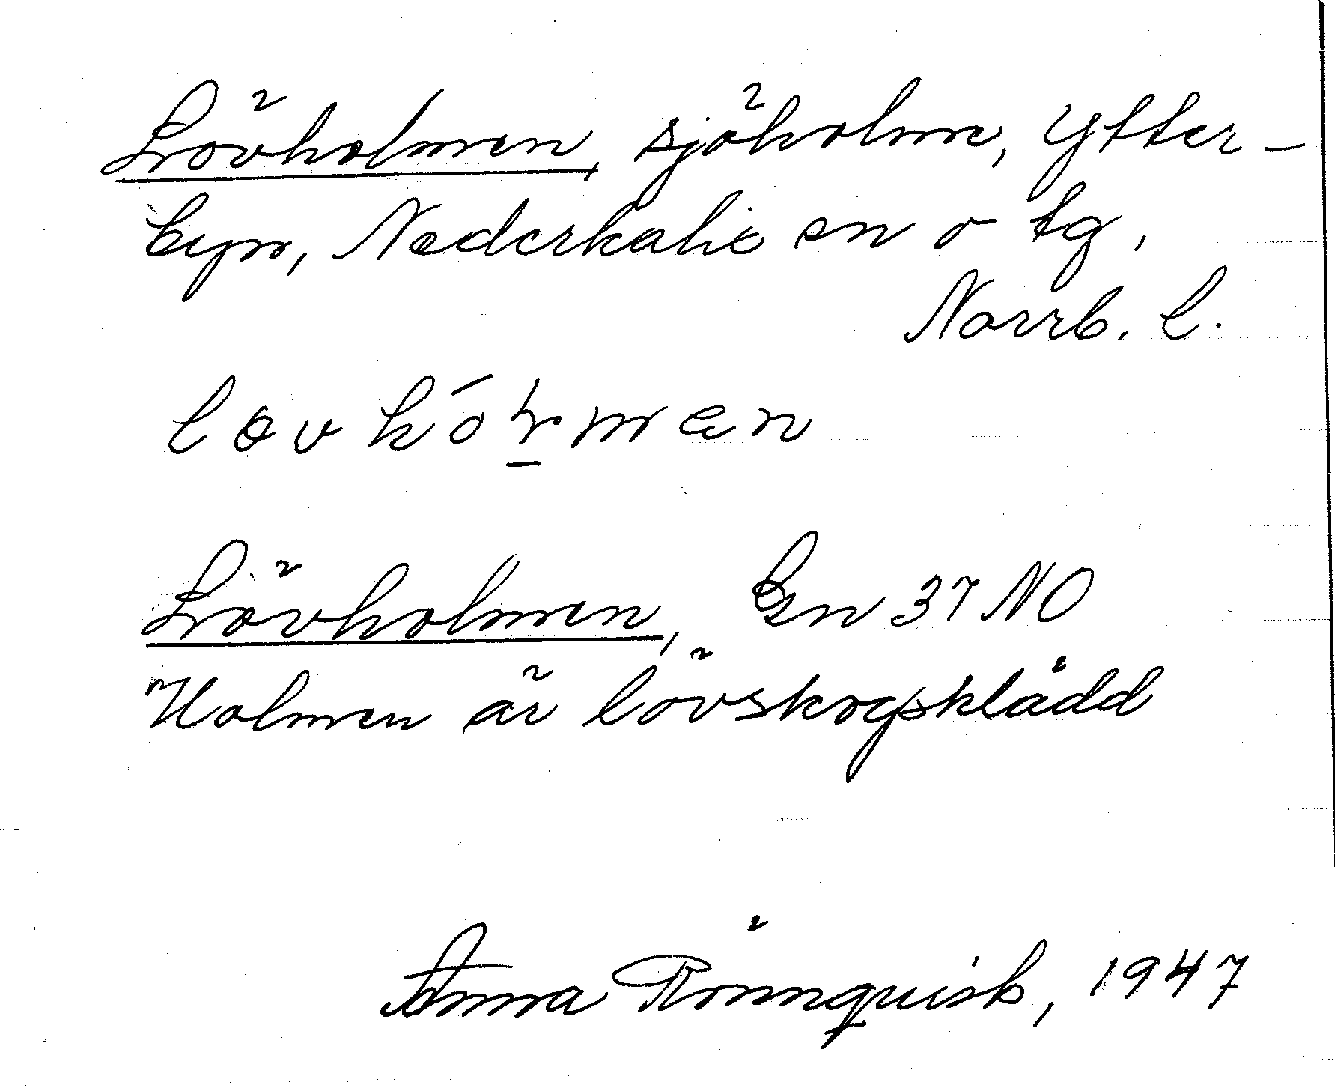 Lövholmen, sjöholme, Ytter-
byn, Nederkalix sn o tg,
Norrb. l.
Lövholmen, Gen 37 NO
Holmen är lövskogsklädd
Anna Rönnquist, 1947